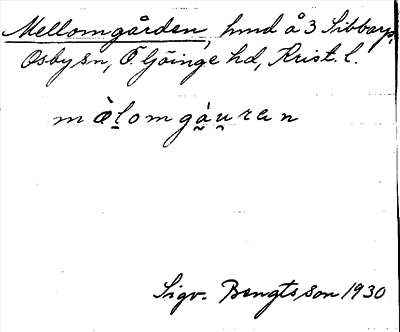 Mellomgården, hmd å 3 Sibbarp,
Osby sn, Ö. Göinge hd, Krist. l.
mæ̀lomgá̰ṵrən
Sigv. Bengtsson 1930